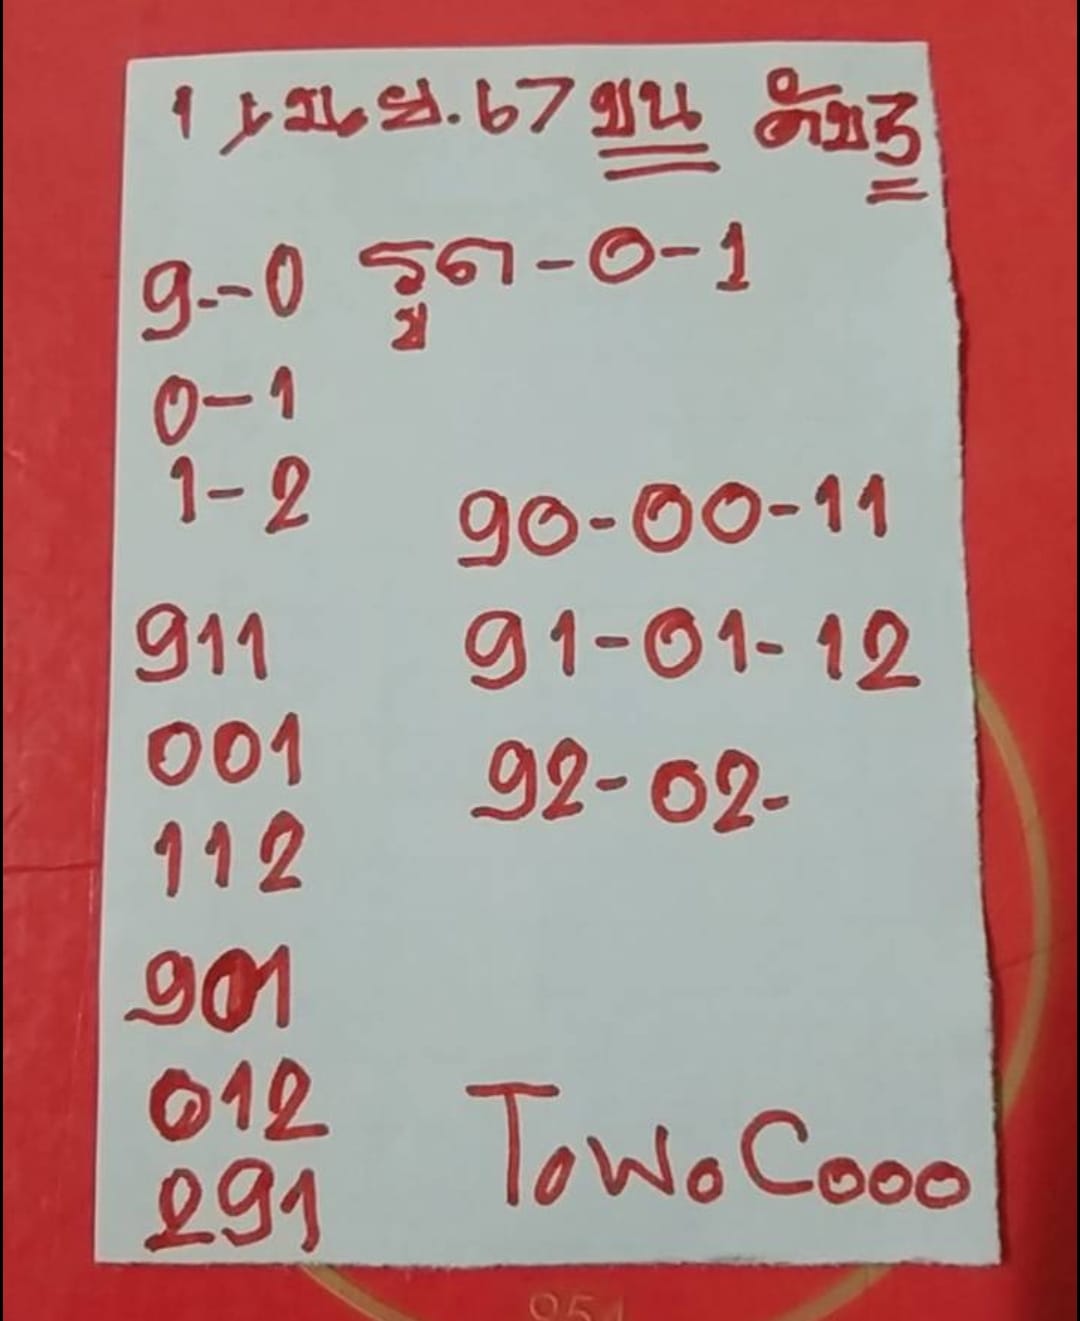 1 เม.ย.67 บน ดับ 3
9--0 รูด-0-1
0-1
1-2
90-00-11
911
91-01-12
001
92-02-
112
901
012
291
ToWoCooo